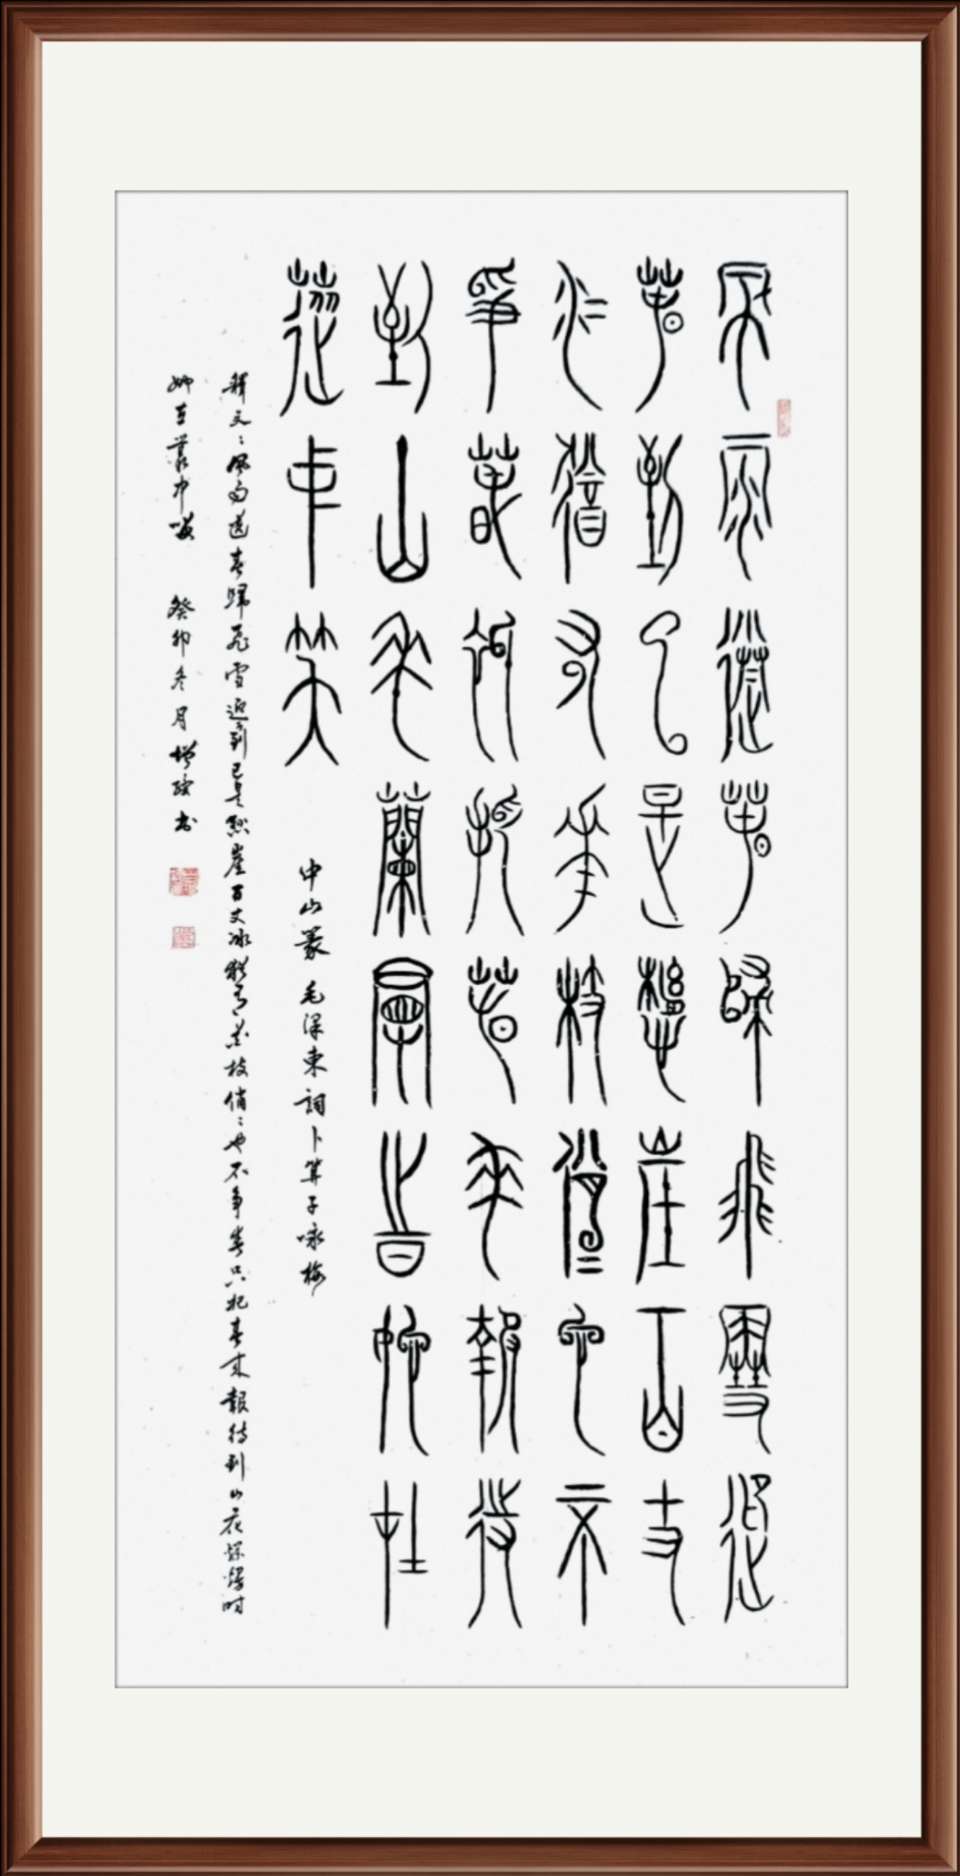 風雨送春歸飛雪迎
春到已是懸崖百丈
冰猶有花枝俏=也不
爭春只把春來報待
到山花爛漫時她在
叢中笑
中山篆 毛澤東詞卜算子咏梅
釋文:風雨送春歸飛雪迎到已是懸崖百丈冰猶有花枝俏:也不爭春只把春來報待到山花爛熳时
她在叢中笑 癸卯冬月增 书